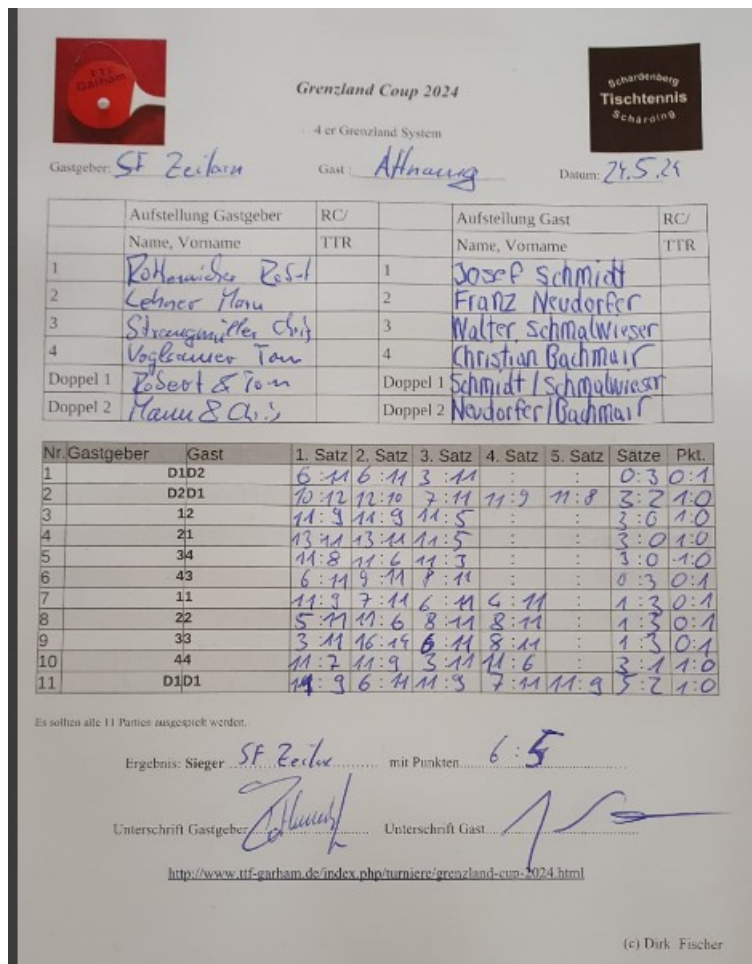 TTF
Garham
Grenzland Coup 2024
4 er Grenzland System
Schardenberg
Tischtennis
Schärding
Gastgeber: SF Zeilarn Gast : Attnang Datum: 24.5.24
Aufstellung Gastgeber RC/ Aufstellung Gast RC/
Name, Vorname TTR Name, Vorname TTR
1 Robert 1 Josef Schmidt
2 Lehner Manu 2 Franz Neudorfer
3 Chris 3 Walter Schmalwieser
4 Tom 4 Christian Bachmair
Doppel 1 Robert & Tom Doppel 1 Schmidt / Schmalwieser
Doppel 2 Manu & Chris Doppel 2 Neudorfer / Bachmair
Nr. Gastgeber Gast 1. Satz 2. Satz 3. Satz 4. Satz 5. Satz Sätze Pkt.
1 D1 D2 6 : 11 6 : 11 3 : 11 : : 0 : 3 0 : 1
2 D2 D1 10 : 12 12 : 10 7 : 11 11 : 9 11 : 8 3 : 2 1 : 0
3 1 2 11 : 9 11 : 9 11 : 5 : : 3 : 0 1 : 0
4 2 1 13 : 11 13 : 11 11 : 5 : : 3 : 0 1 : 0
5 3 4 11 : 8 11 : 6 11 : 3 : : 3 : 0 1 : 0
6 4 3 6 : 11 9 : 11 8 : 11 : : 0 : 3 0 : 1
7 1 1 11 : 9 7 : 11 6 : 11 : 11 : 1 : 3 0 : 1
8 2 2 5 : 11 11 : 6 8 : 11 8 : 11 : 1 : 3 0 : 1
9 3 3 3 : 11 16 : 14 6 : 11 8 : 11 : 1 : 3 0 : 1
10 4 4 11 : 7 11 : 9 3 : 11 11 : 6 : 3 : 1 1 : 0
11 D1 D1 11 : 9 6 : 11 11 : 9 7 : 11 11 : 9 3 : 2 1 : 0
Es sollten alle 11 Partien ausgespielt werden.
Ergebnis: Sieger SF Zeilarn mit Punkten 6 : 5
Unterschrift Gastgeber Unterschrift Gast
http://www.ttf-garham.de/index.php/turniere/grenzland-cup-2024.html
(c) Dirk Fischer